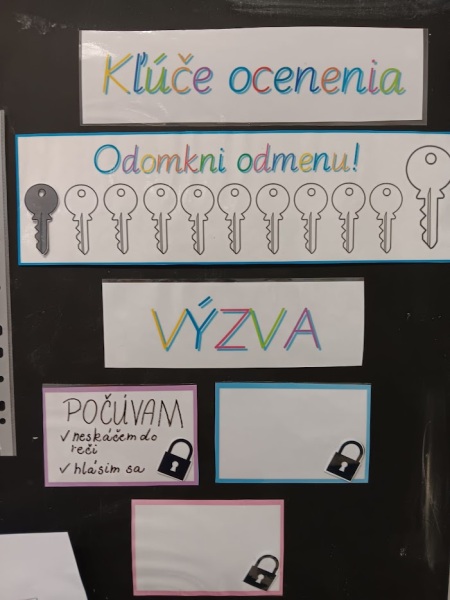 Kľúče ocenenia
Odomkni odmenu!
VÝZVA
POČÚVAM
✓ neskáčem do
reči
✓ hlásim sa